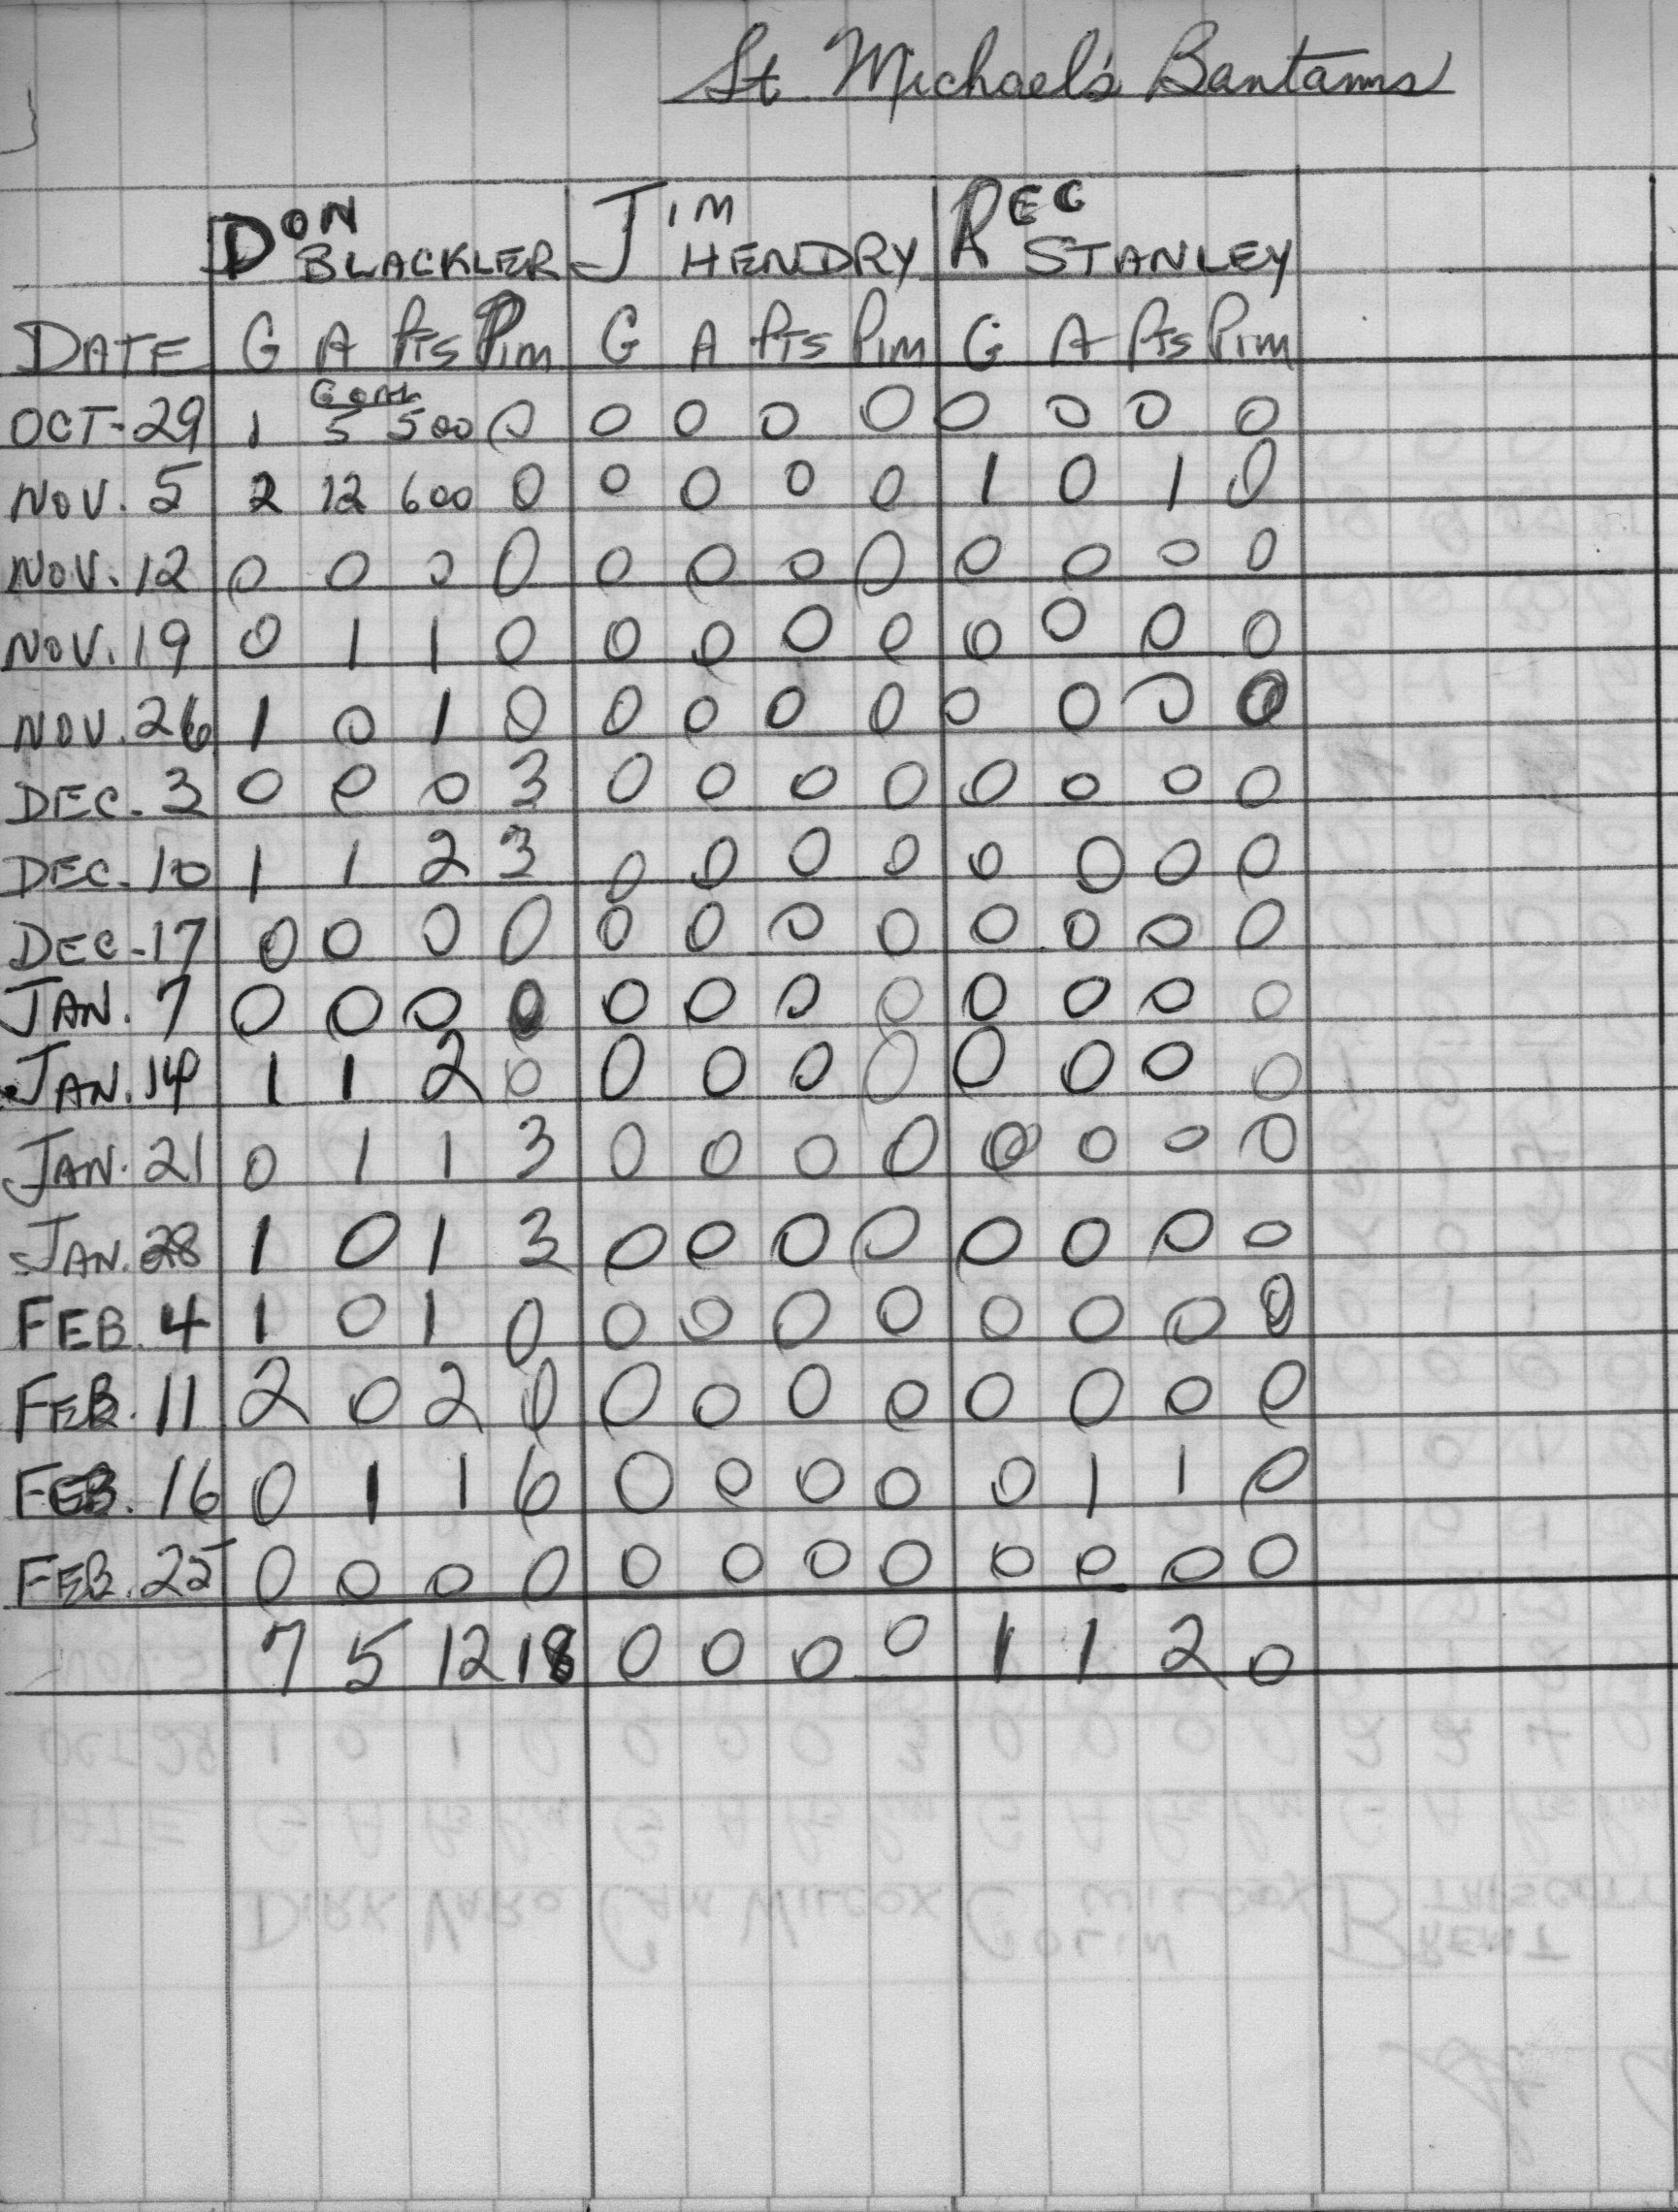 St. Michael's Bantams
DON BLACKLER JIM HENDRY REG STANLEY
DATE G A Pts Pim G A Pts Pim G A Pts Pim
GOAL
OCT-29 1 5 500 0 0 0 0 0 0 0 0 0
NOV. 5 2 12 600 0 0 0 0 0 1 0 1 0
NOV. 12 0 0 0 0 0 0 0 0 0 0 0 0
NOV. 19 0 1 1 0 0 0 0 0 0 0 0 0
NOV. 26 1 0 1 0 0 0 0 0 0 0 0 0
DEC. 3 0 0 0 3 0 0 0 0 0 0 0 0
DEC. 10 1 1 2 3 0 0 0 0 0 0 0 0
DEC-17 0 0 0 0 0 0 0 0 0 0 0 0
JAN. 7 0 0 0 0 0 0 0 0 0 0 0 0
JAN. 14 1 1 2 0 0 0 0 0 0 0 0 0
JAN. 21 0 1 1 3 0 0 0 0 0 0 0 0
JAN. 28 1 0 1 3 0 0 0 0 0 0 0 0
FEB. 4 1 0 1 0 0 0 0 0 0 0 0 0
FEB. 11 2 0 2 0 0 0 0 0 0 0 0 0
FEB. 16 0 1 1 6 0 0 0 0 0 1 1 0
FEB. 25 0 0 0 0 0 0 0 0 0 0 0 0
7 5 12 18 0 0 0 0 1 1 2 0